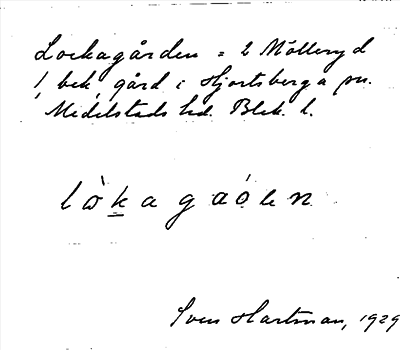 Lockagården = 2 Mölleryd
1, bek. gård i Hjortsberga sn.
Medelstads hd. Blek. l.
lò̀k̲a gaó̀len
Sven Hartman, 1929